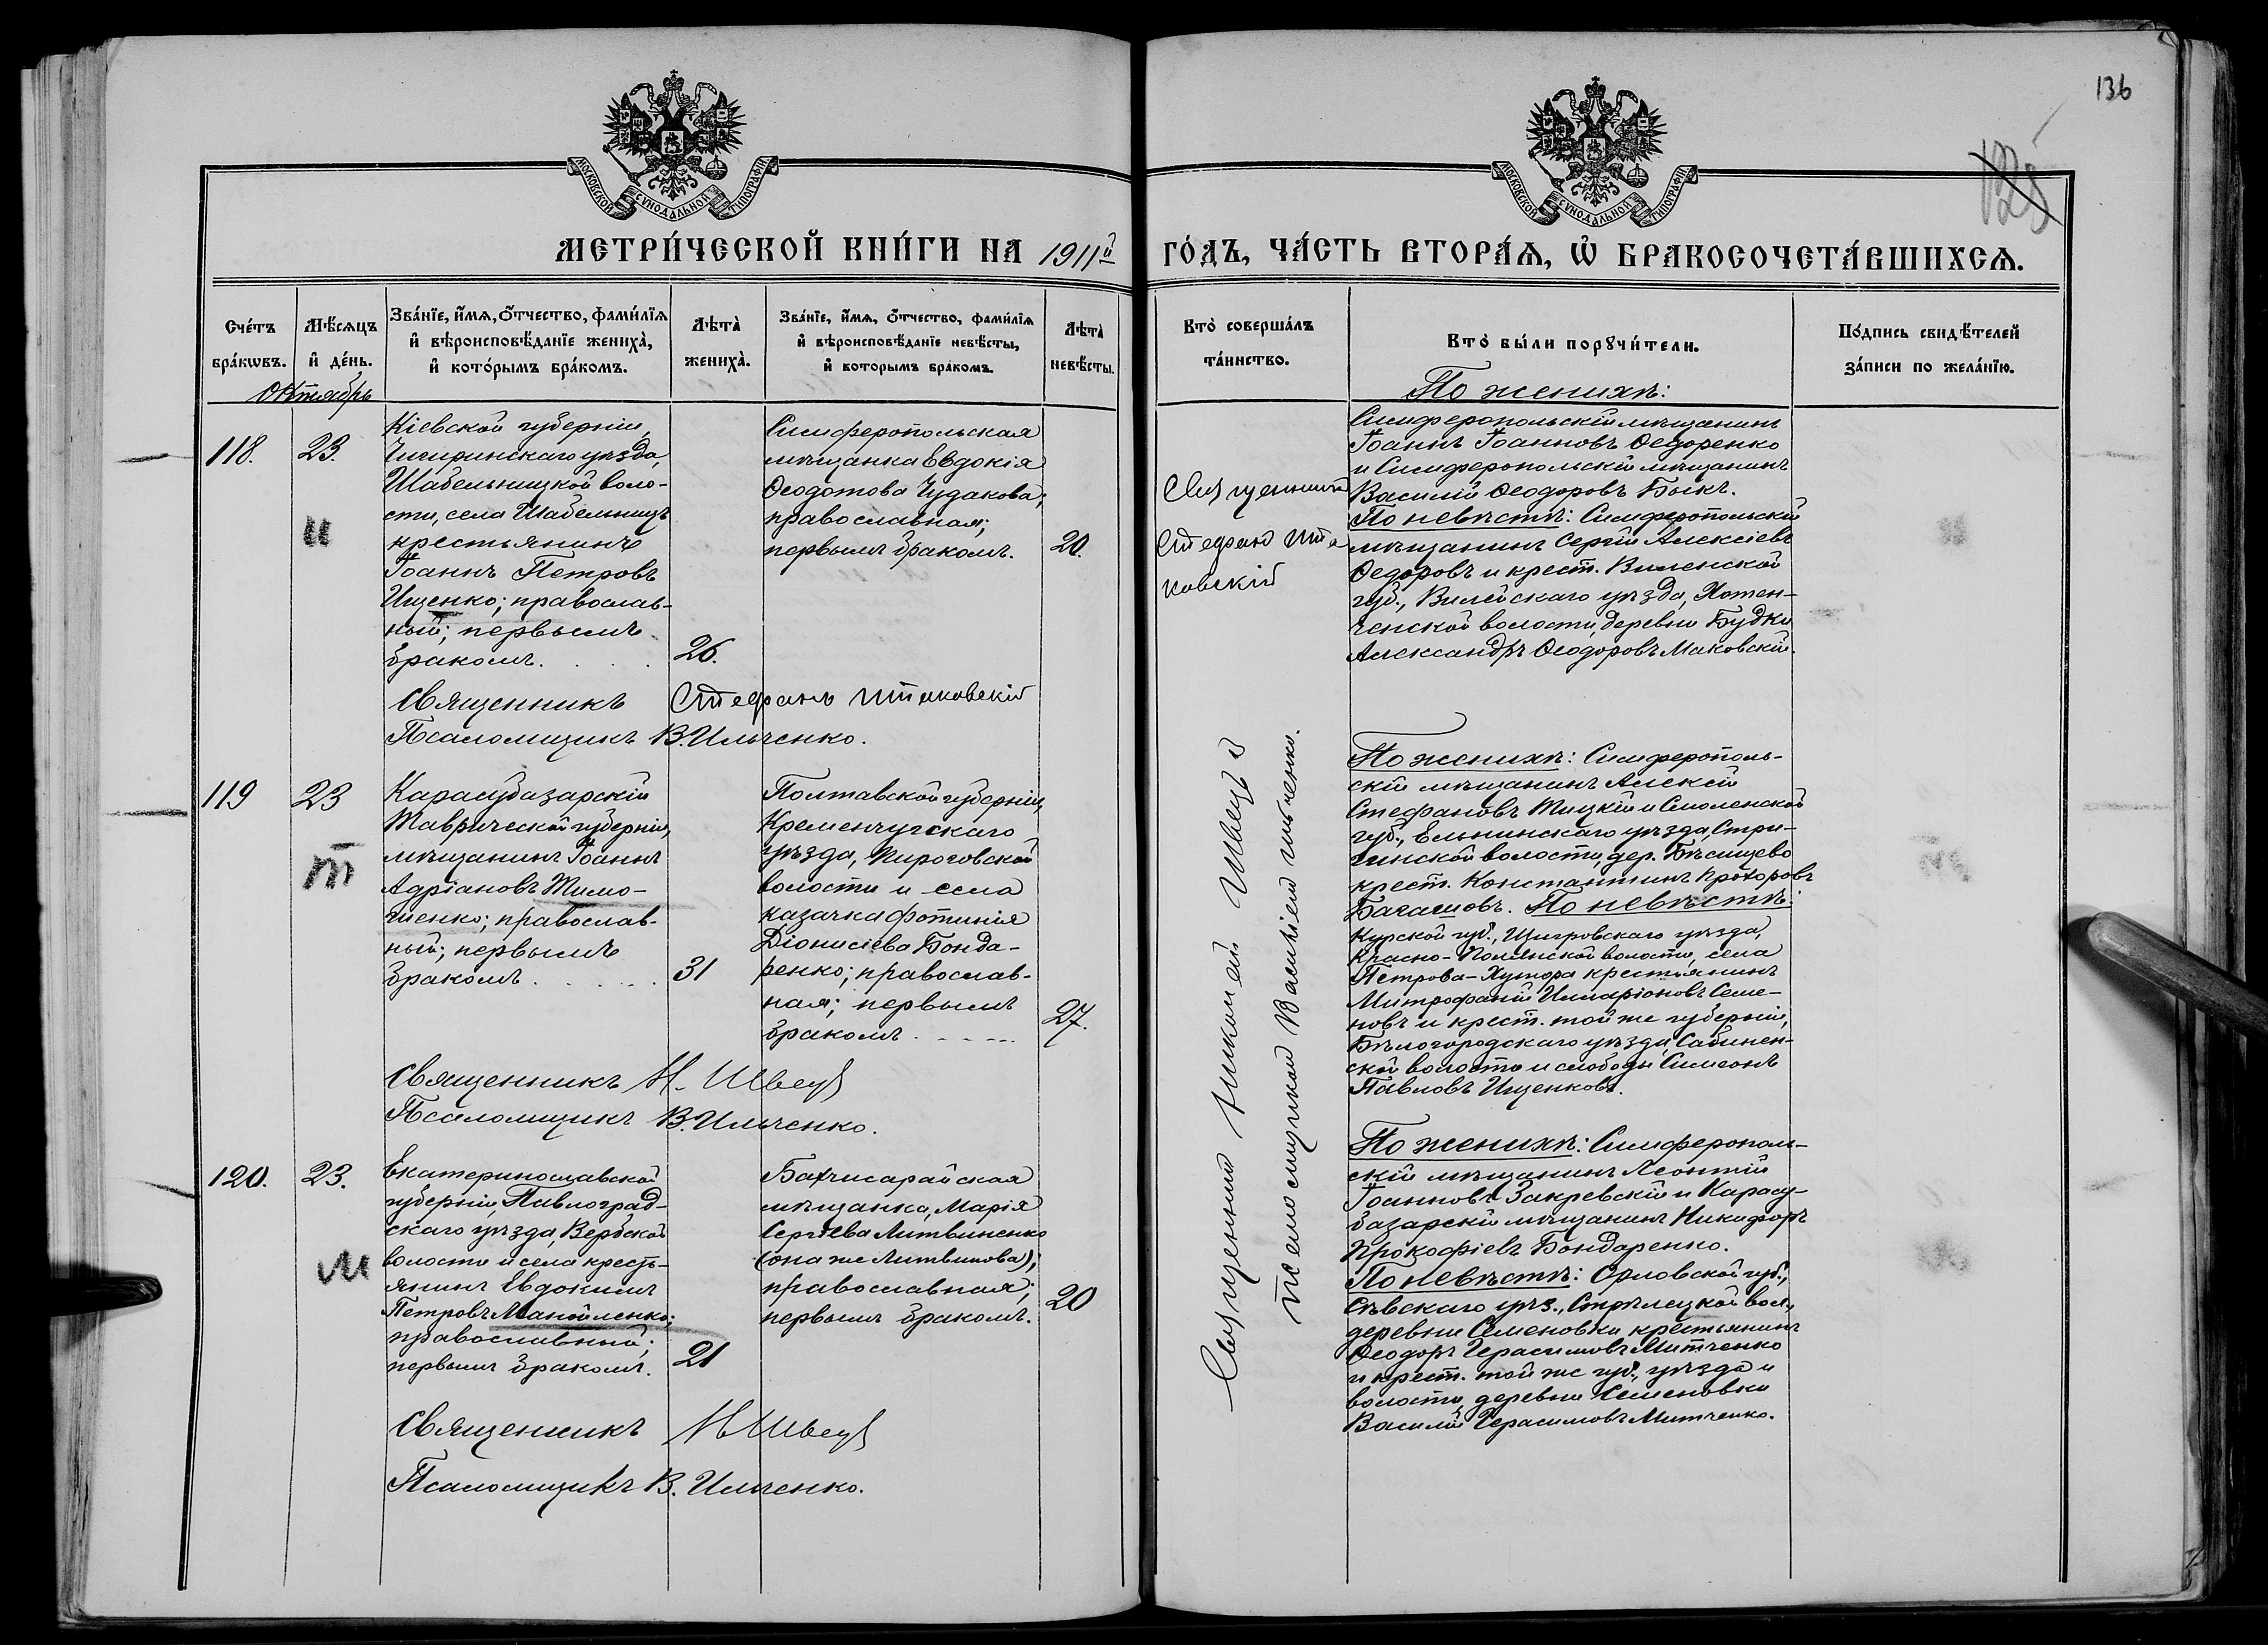 136
МОСКОВСКОЙ СѴНОДАЛЬНОЙ ТИПОГРАФІИ
МОСКОВСКОЙ СѴНОДАЛЬНОЙ ТИПОГРАФІИ
МЕТРИ́ЧЕСКОЙ КНИ́ГИ НА 1911й ГО́ДЪ, ЧА́СТЬ ВТОРА́Я, Ѡ БРАКОСОЧЕТА́ВШИХСЯ.
Сче́тъ бра́кѡвъ.
Мѣ́сяцъ и҆ де́нь.
Зва́нїе, и҆́мя, ѻ҆́тчество, фами́лїя и҆ вѣроисповѣ́данїе жениха̀, и҆ кото́рымъ бра́комъ.
Лѣта̀ жениха̀.
Зва́нїе, и҆́мя, ѻ҆́тчество, фами́лїя и҆ вѣроисповѣ́данїе невѣ́сты, и҆ которымъ бра́комъ.
Лѣта̀ невѣ́сты.
Кто̀ соверша́лъ та́инство.
Кто̀ бы́ли порꙋчи́тели.
По́дпись свидѣ́телей за́писи по жела́нїю.
Октябрь
118.
23.
и
Кіевской губерніи,
Чигиринскаго уѣзда,
Шабельницкой воло-
сти, села Шабельницъ
крестьянинъ
Іоаннъ Петровъ
Ищенко; православ-
ный; первымъ
бракомъ.
26.
Симферопольская
мѣщанка Евдокія
Ѳеодотова Чудакова;
православная;
первымъ бракомъ.
20.
Священникъ
Стефанъ
По женихѣ:
Симферопольскій мѣщанинъ
Іоаннъ Іоанновъ Ѳедоренко
и Симферопольскій мѣщанинъ
Василій Ѳеодоровъ Быкъ.
По невѣстѣ: Симферопольскій
мѣщанинъ Сергій Алексіевъ
Ѳедоровъ и крест. Виленской
губ., Вилейскаго уѣзда, Хотен-
ченской волости, деревни Будки
Александръ Ѳеодоровъ Маковскій.
Священникъ Стефанъ
Псаломщикъ В. Ильченко.
119
23
т
Карасубазарскій
Таврической губерніи,
мѣщанинъ Іоаннъ
Адріановъ Тимо-
шенко; православ-
ный; первымъ
бракомъ
31
Полтавской губерніи,
Кременчугскаго
уѣзда, Пироговской
волости и села
казачка Фотинія
Діонисіева Бонда-
ренко; православ-
ная; первымъ
бракомъ
27.
Священникъ Николай Швецъ съ
псаломщикомъ Василіемъ Ильченко.
По женихѣ: Симферополь-
скій мѣщанинъ Алексій
Стефановъ Тицкій и Смоленской
губ., Ельнинскаго уѣзда, Стри-
гинской волости, дер. Бѣсищево
крест. Константинъ Прохоровъ
Багашовъ. По невѣстѣ:
Курской губ., Щигровскаго уѣзда,
Красно-Полянской волости, села
Петрова-Хутора крестьянинъ
Митрофаній Иларіоновъ Семе-
новъ и крест. той же губерніи,
Бѣлогородскаго уѣзда, Сабинен-
ской волости и слободы Симеонъ
Павловъ Ищенковъ.
Священникъ Н. Швецъ
Псаломщикъ В. Ильченко.
120.
23.
м
Екатеринославской
губерніи, Павлоград-
скаго уѣзда, Вербской
волости и села кресть-
янинъ Евдокимъ
Петровъ Манойленко;
православный;
первымъ бракомъ.
21
Бахчисарайская
мѣщанка, Марія
Сергіева Литвиненко
(она же Литвинова);
православная;
первымъ бракомъ.
20
По женихѣ: Симферополь-
скій мѣщанинъ Леонтій
Іоанновъ Закревскій и Карасу-
базарскій мѣщанинъ Никифоръ
Прокофіевъ Бондаренко.
По невѣстѣ: Орловской губ.,
Сѣвскаго уѣз., Стрѣлецкой вол.,
деревни Семеновки крестьянинъ
Ѳеодоръ Герасимовъ Митченко
и крест. той же губ., уѣзда и
волости, деревни Семеновки
Василій Герасимовъ Митченко.
Священникъ Н Швецъ
Псаломщикъ В. Ильченко.